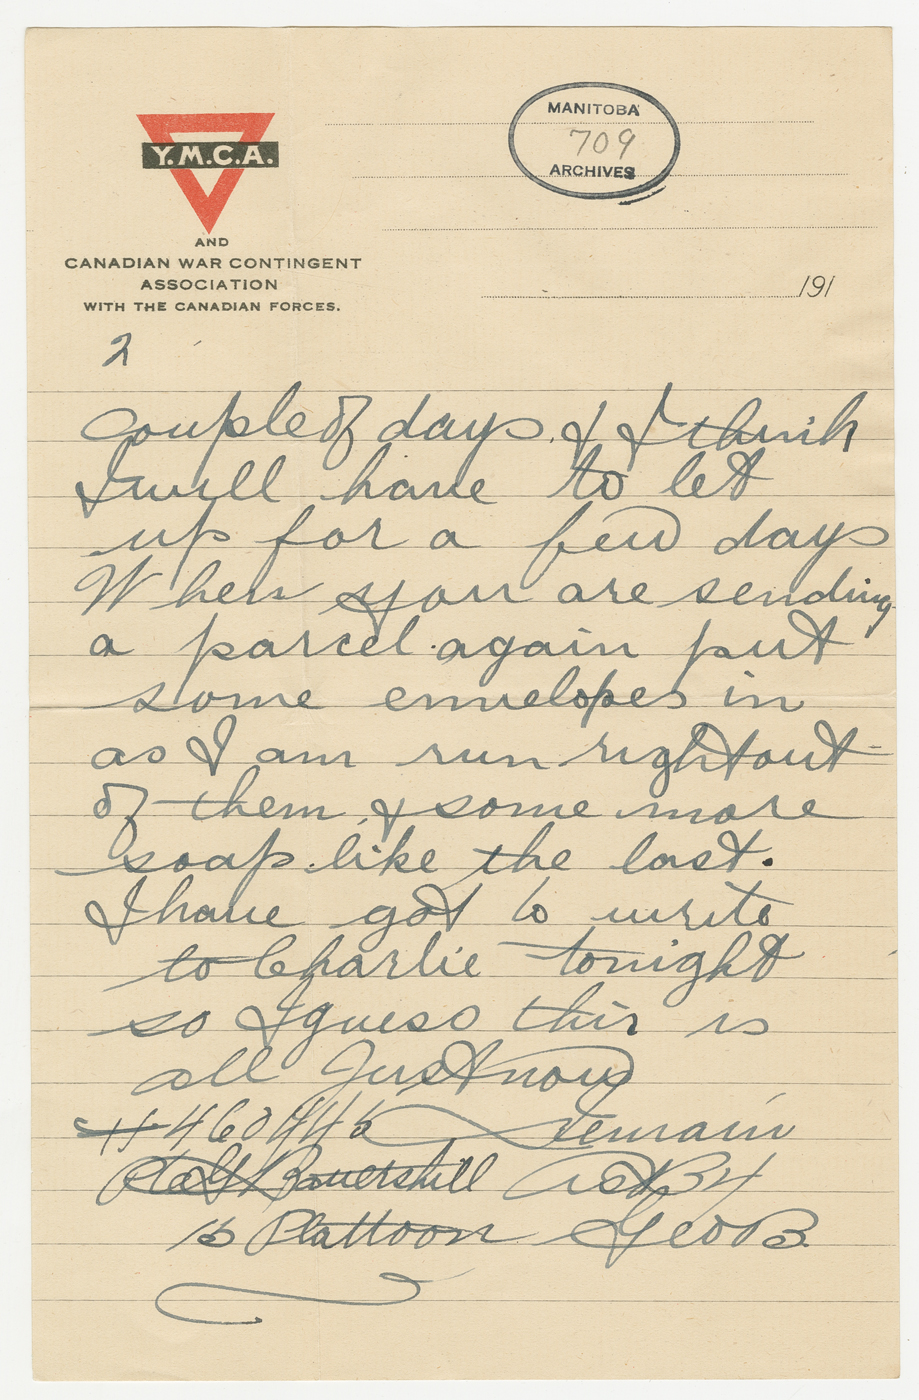 MANITOBA
709
ARCHIVES
Y.M.C.A.
AND
CANADIAN WAR CONTINGENT
ASSOCIATION
WITH THE CANADIAN FORCES.
191
2
couple of days. & I think
I will have to let
up for a few days
When you are sending
a parcel again put
some envelopes in
as I am run right out
of them & some more
soap like the last.
I have got to write
to Charlie tonight
so I guess this is
all Just now
Remain
Geo B.